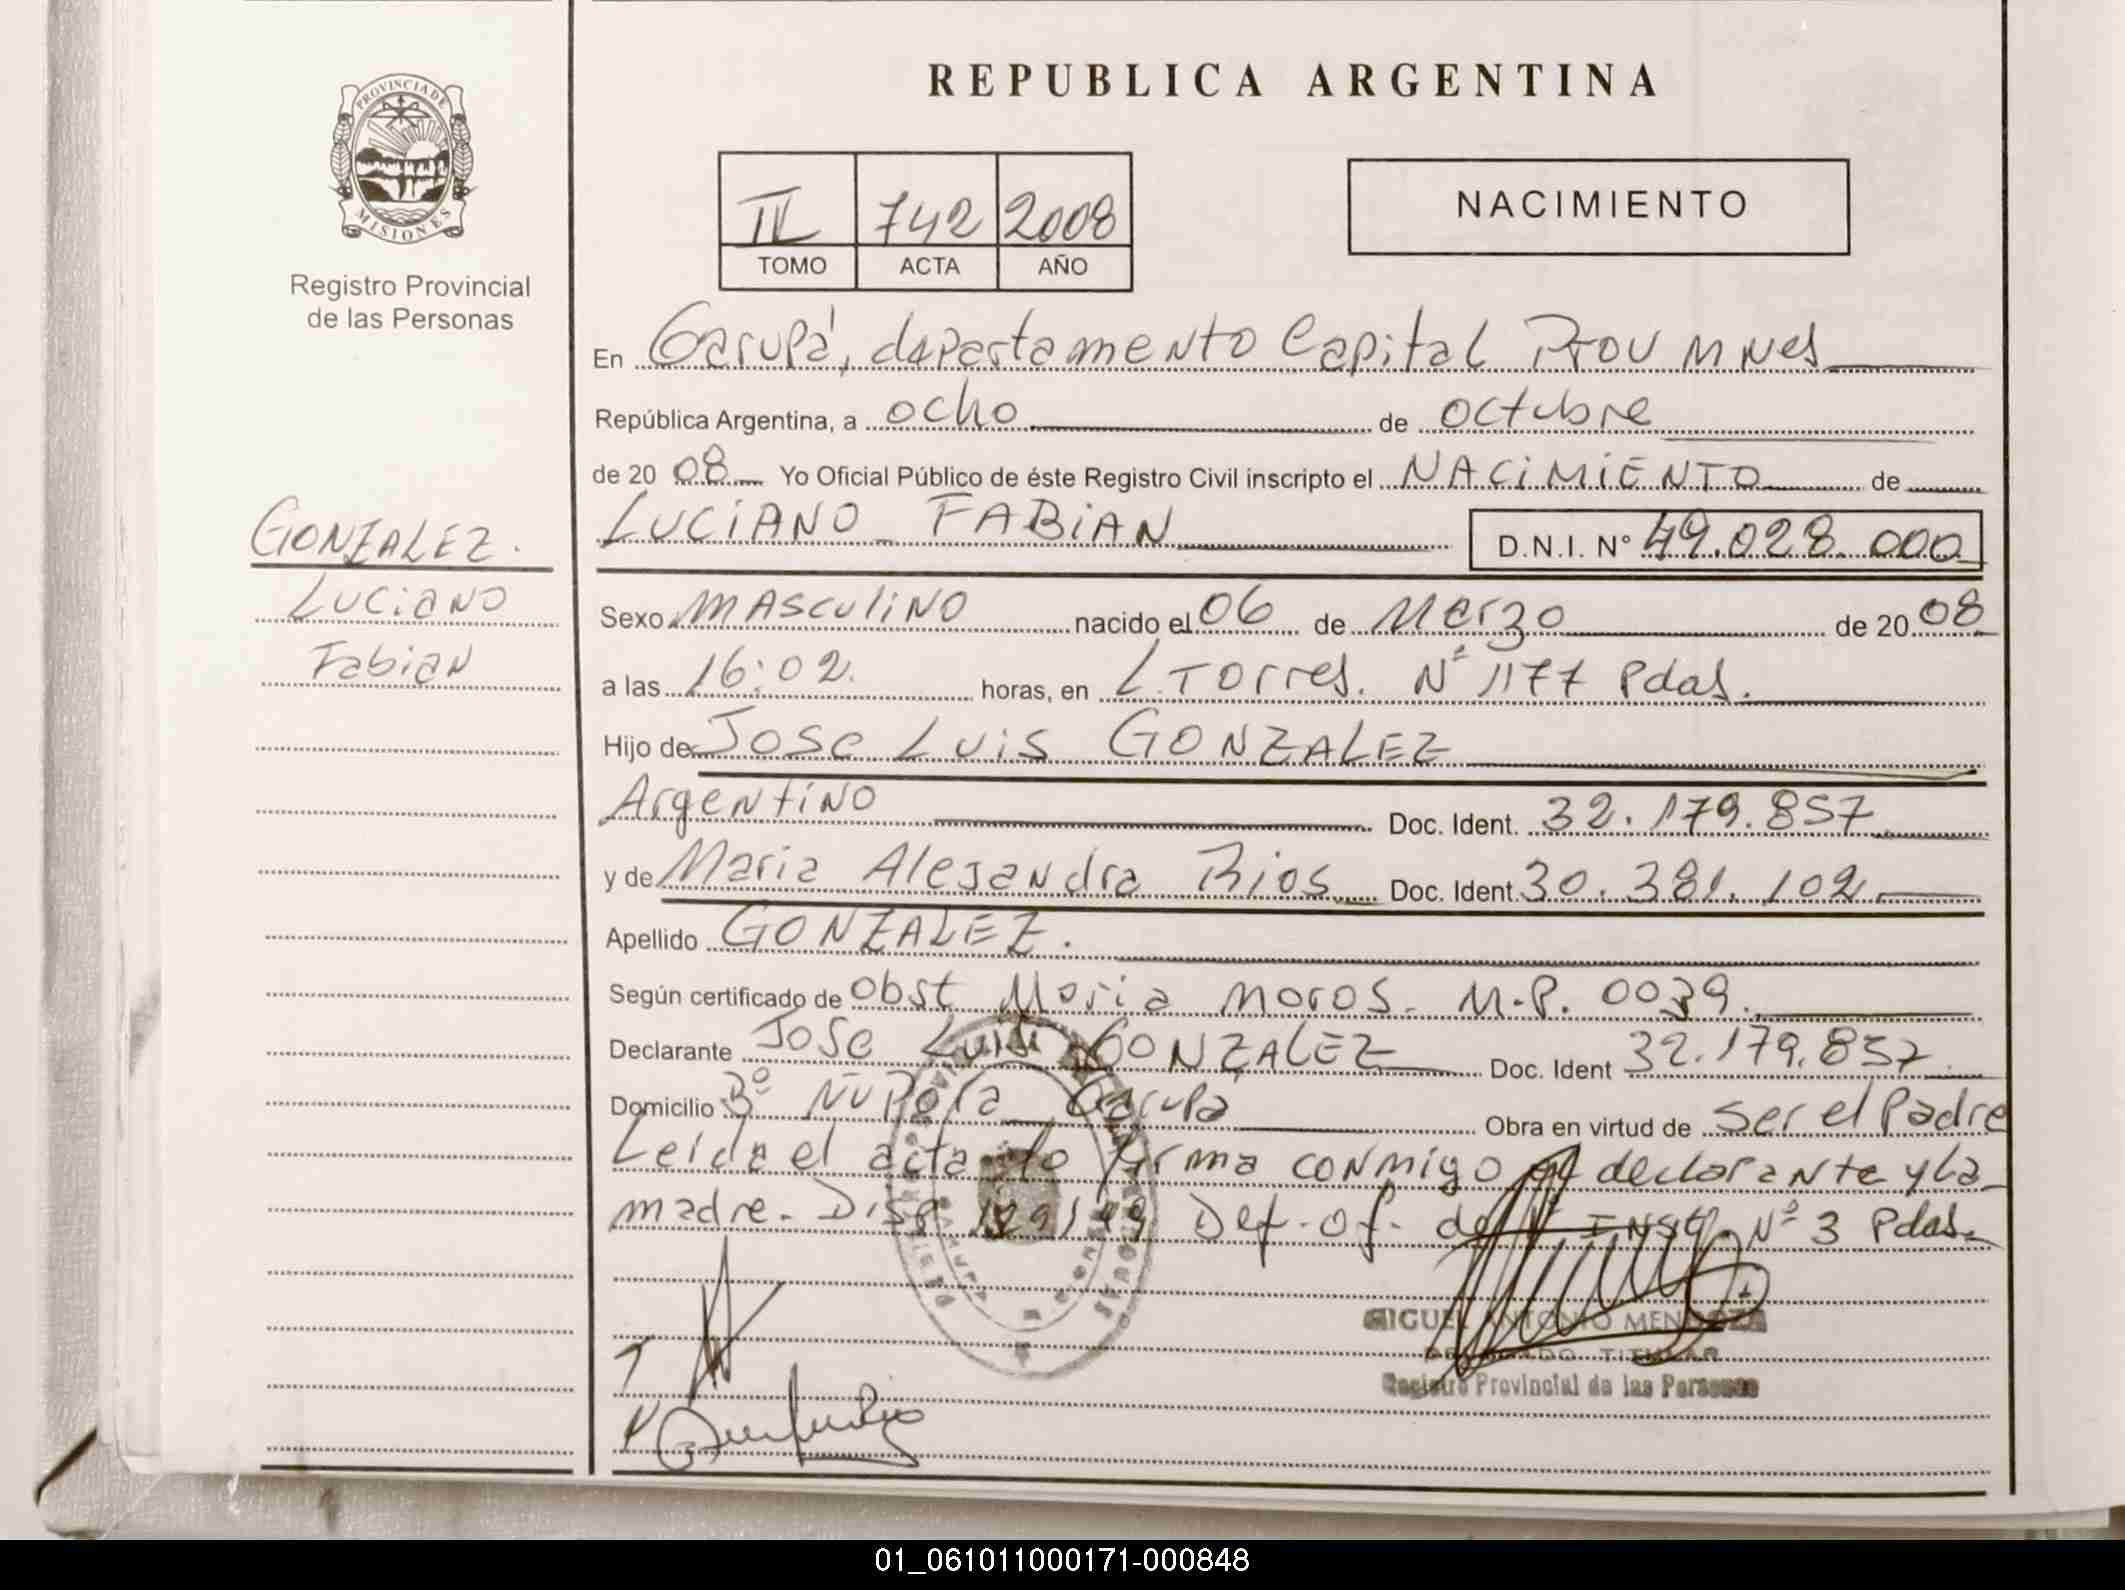 REPUBLICA ARGENTINA
PROVINCIA DE
MISIONES
Registro Provincial
de las Personas
II 742 2008
TOMO ACTA AÑO
NACIMIENTO
GONZALEZ.
Luciano
Fabian
En Garupá, departamento Capital Prov Mnes
República Argentina, a ocho de octubre
de 20 08 Yo Oficial Público de éste Registro Civil inscripto el NACIMIENTO de
LUCIANO FABIAN D.N.I. Nº 49.028.000
Sexo MAsculiNO nacido el 06 de Marzo de 20 08
a las 16:02. horas, en L. Torres. Nº 1177 Pdas.
Hijo de Jose Luis GONZALEZ
Argentino Doc. Ident. 32.179.857
y de Maria Alejandra Rios Doc. Ident. 30.381.102.
Apellido GONZALEZ.
Según certificado de Obst Maria Moros. M.P. 0039.
Declarante Jose Luis GONZALEZ Doc. Ident 32.179.857
Domicilio Bº Ñu Pora Garupa Obra en virtud de ser el Padre
Leida el acta la firma conmigo el declarante y la
madre. Disp 129/99 Def. of. de Nº 3 Pdas.
MIGUEL ANTONIO MENDOZA
DELEGADO TITULAR
Registro Provincial de las Personas
01_061011000171-000848